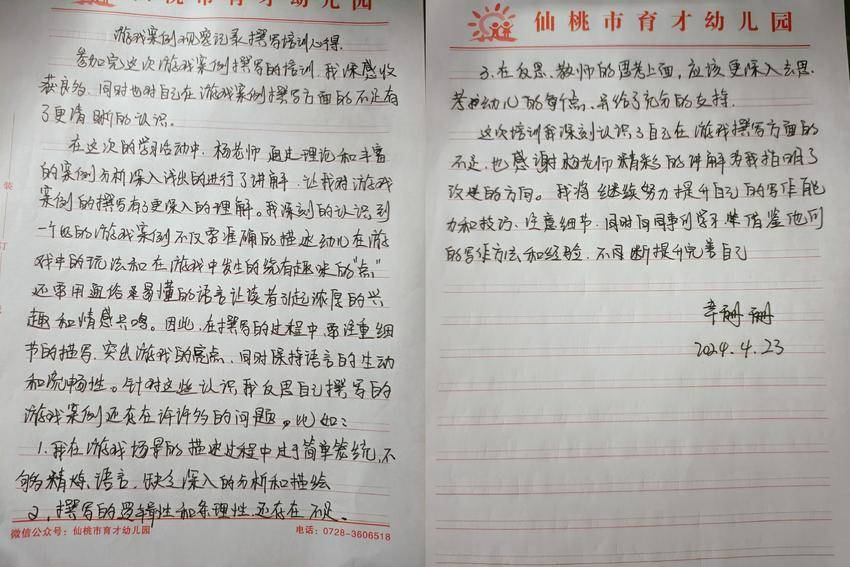 仙桃市育才幼儿园
游戏案例观察记录撰写培训心得
参加完这次游戏案例撰写的培训,我深感收
获良多,同时也对自己在游戏案例撰写方面的不足有
了更清晰的认识。
在这次的学习活动中,杨老师通过理论和丰富
的案例分析深入浅出的进行了讲解,让我对游戏
案例的撰写有了更深入的理解。我深刻的认识到
一个好的游戏案例不仅要准确的描述幼儿在游
戏中的玩法和在游戏中发生的饶有趣味的“点”
还要用通俗易懂的语言让读者引起浓厚的兴
趣和情感共鸣。因此,在撰写的过程中,要注重细
节的描写,突出游戏的亮点,同时保持语言的生动
和流畅性。针对这些认识,我反思自己撰写的
游戏案例还存在许许多的问题,比如:
1.我在游戏场景的描述过程中过于简单笼统,不
够精炼语言,缺乏深入的分析和描绘
2,撰写的逻辑性和条理性还存在不足、
微信公众号:仙桃市育才幼儿园 电话:0728-3606518
装
订
仙桃市育才幼儿园
3.在反思、教师的思考上面,应该更深入去思
考幼儿的,并给予充分的支持.
这次培训我深刻认识了自己在游戏撰写方面的
不足,也感谢杨老师精彩的讲解为我指明了
改进的方向。我将继续努力提升自己的写作能
力和技巧、注意细节,同时向同事们学习并借鉴他们
的写作方法和经验,不断提升完善自己
辛珊珊
2024.4.23